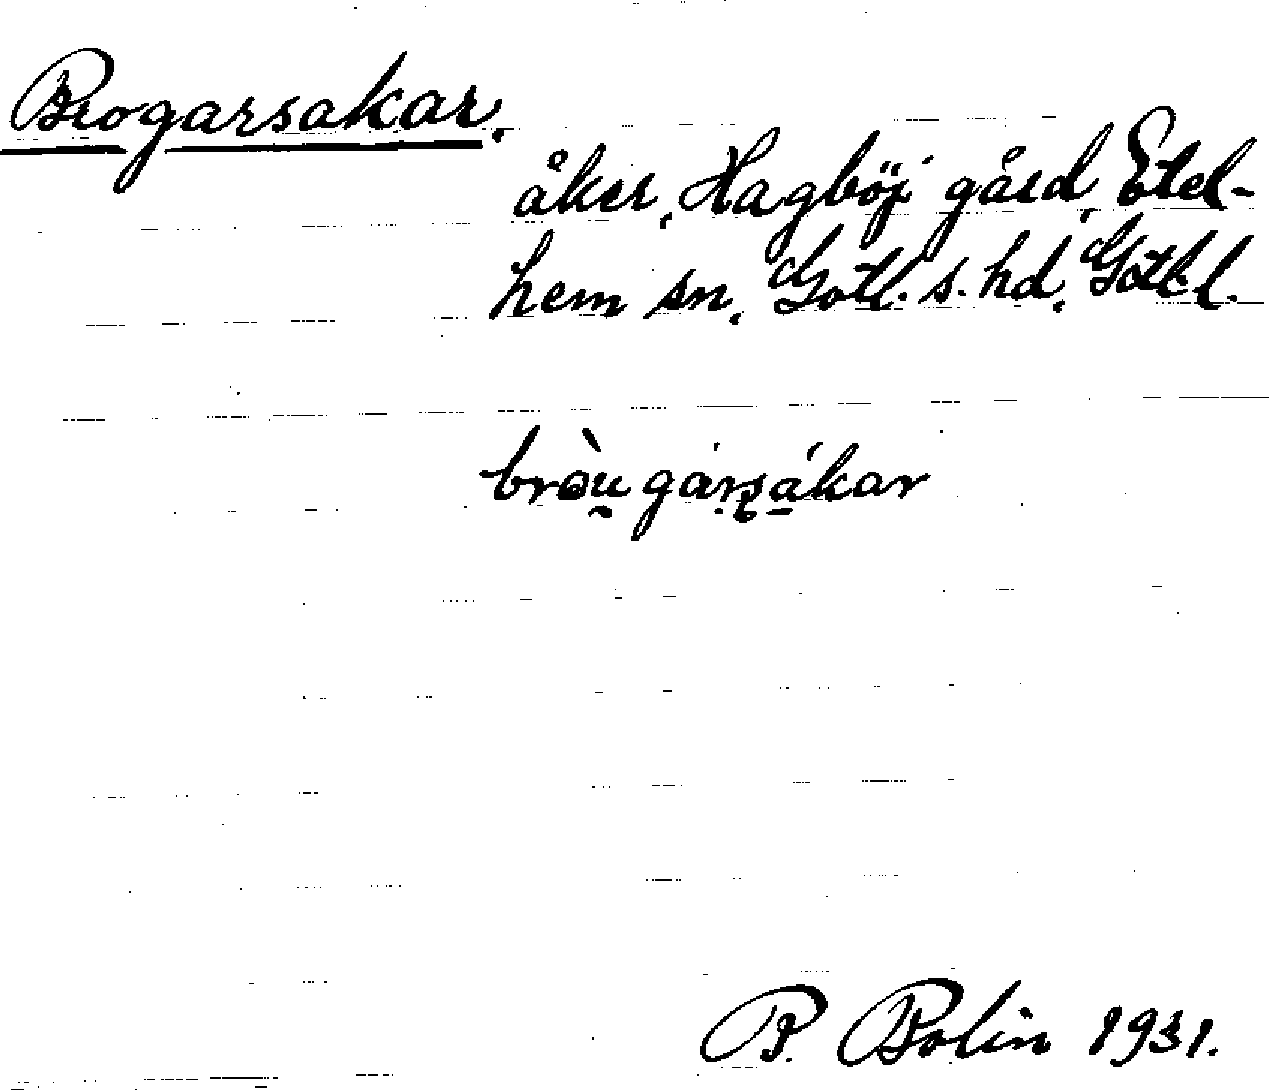 Brogarsakar.
åker, Hagböj gård, Etel-
hem sn, Gotl. s. hd, Gotl.
bròu̯ gársákar
B. Bolin 1931.